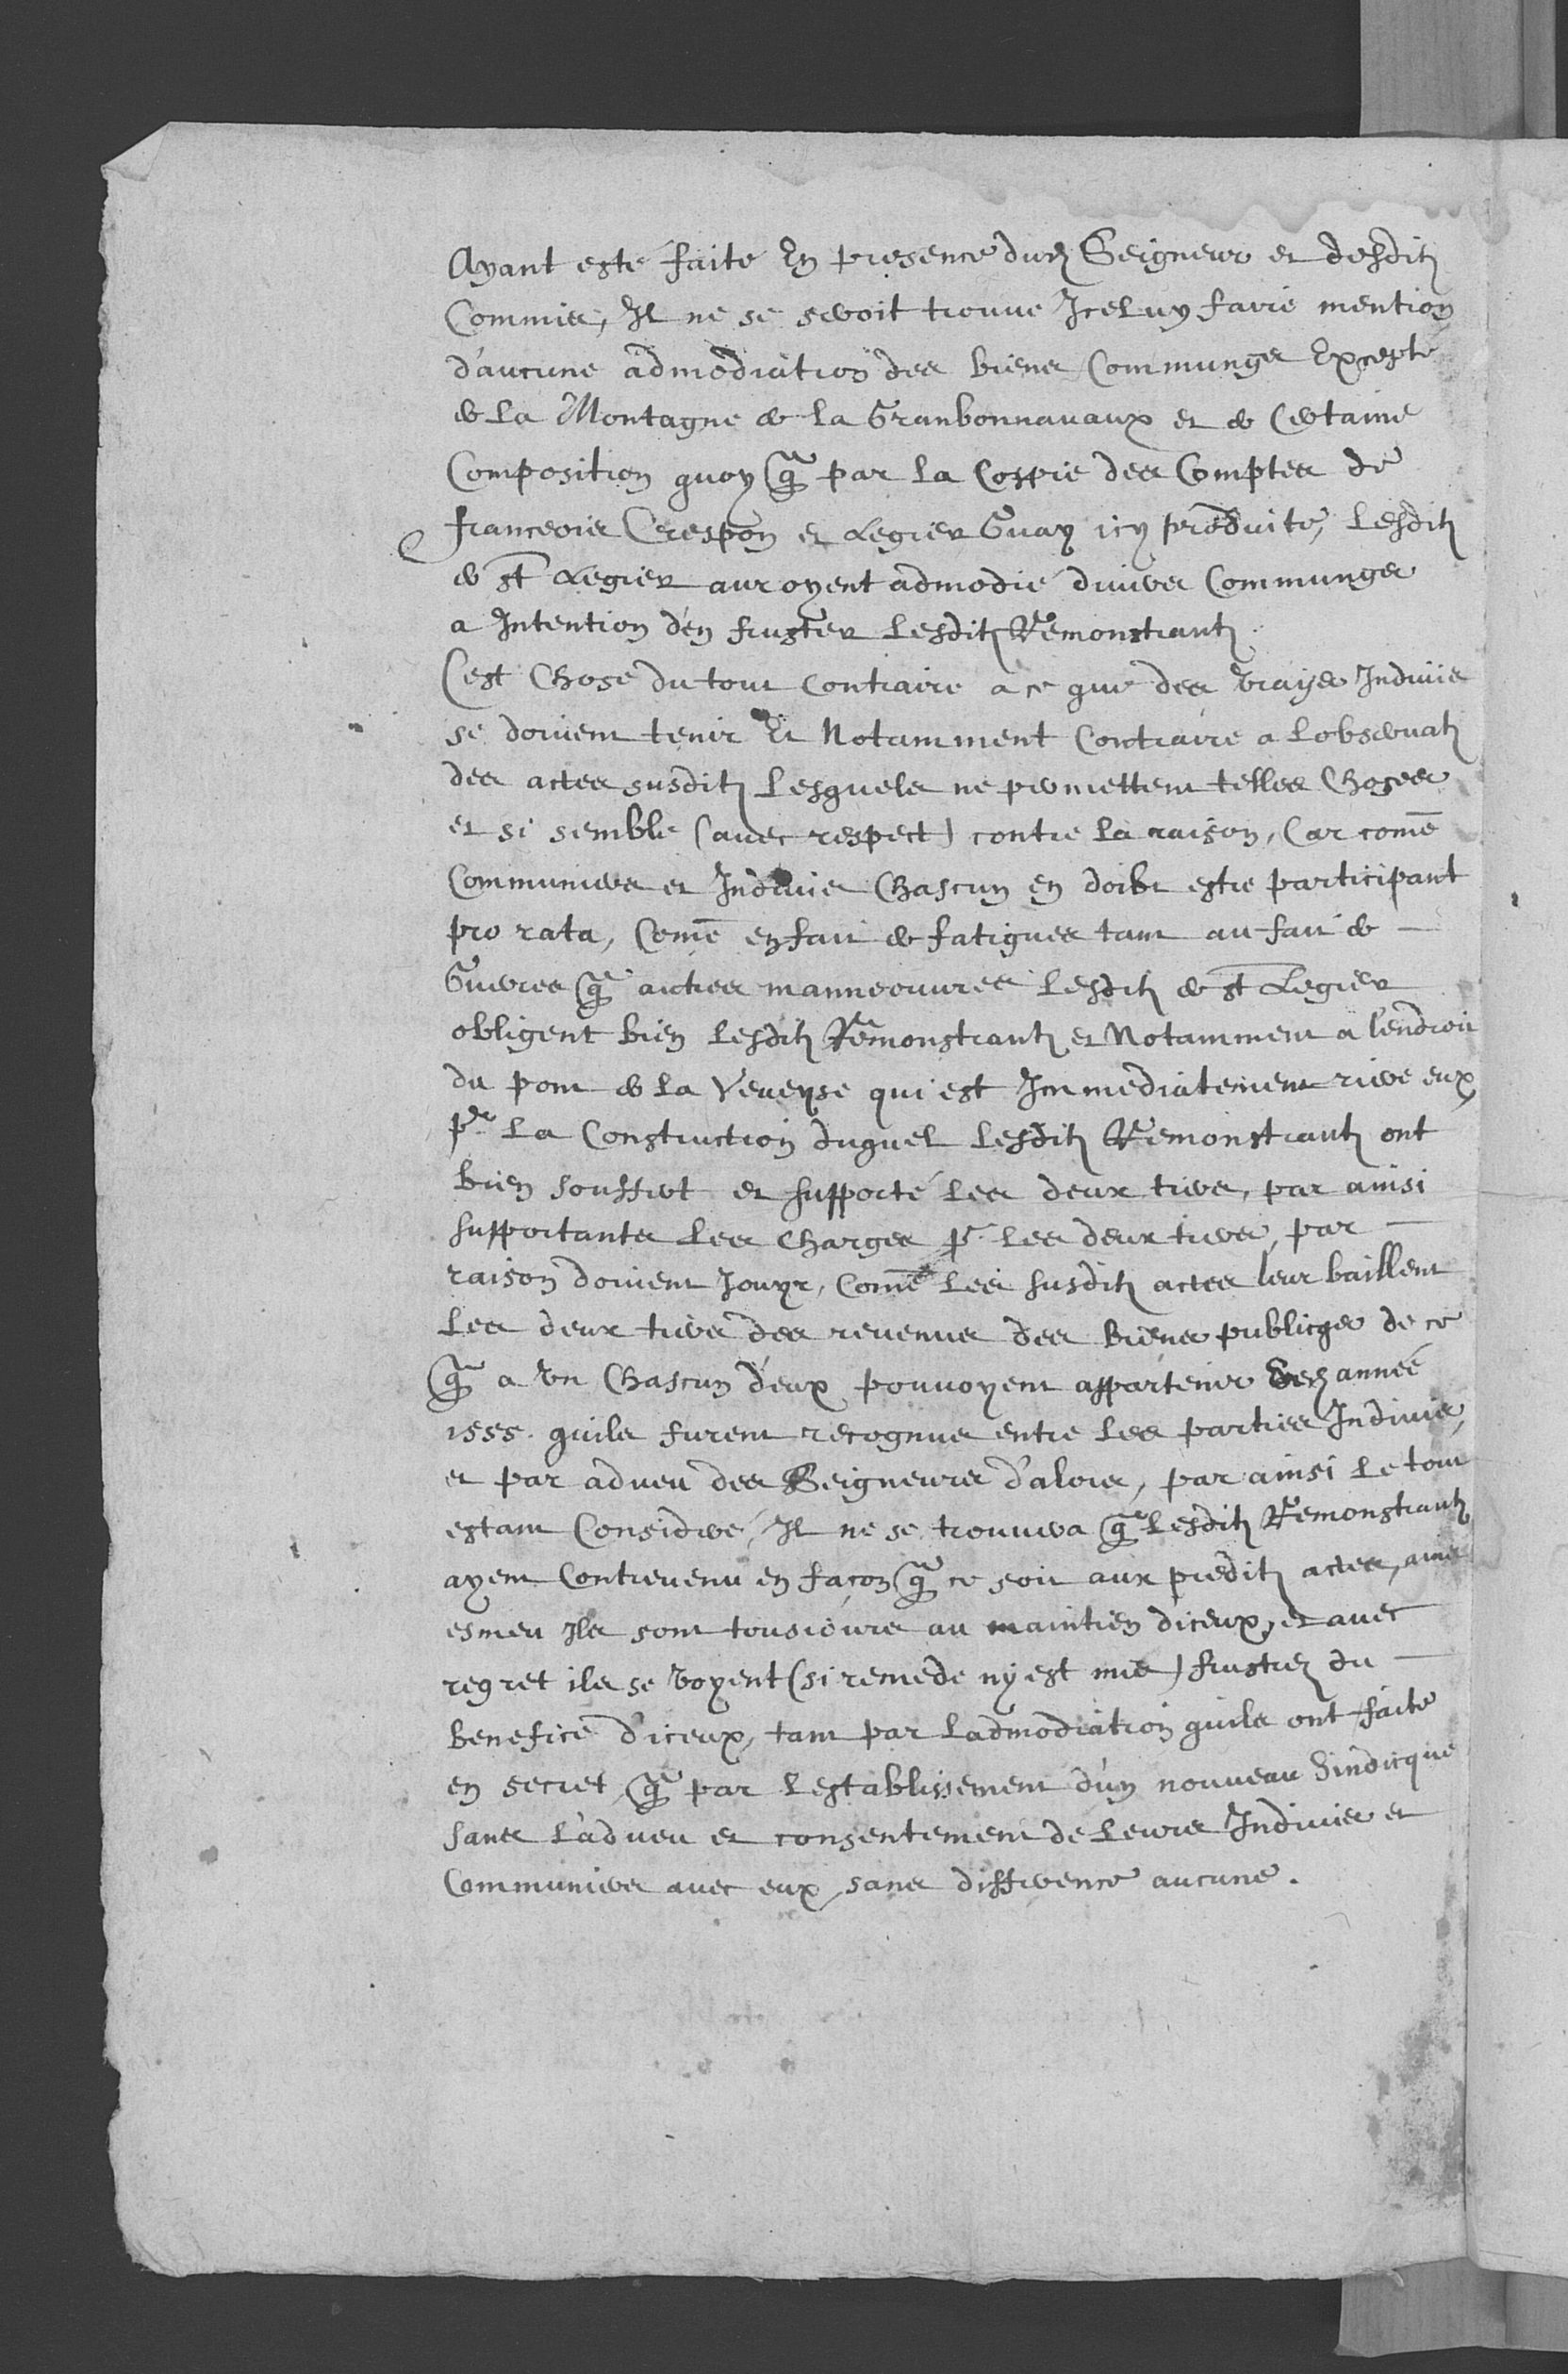 Ayant esté faite En presence dudt Seigneur et desditz
Commis, Il ne se seroit trouve Iceluy faire mention
d'aucune admodiation des biens Communges Excepte
de La Montagne de la Granbonnavaux et de Certaine
Composition quoy que par la Coppie des Comptes de
franceois Crespon et Legier Guay icy produite, Lesditz
de St Legier auroyent admodié divers Communges
a Intention d'en fruster Lesditz Remonstrantz
C'est Chose du tout Contraire a ce que des vrayes Indiviis
se doivent tenir Et Notamment Contraire a Lobservatz
des actes susditz Lesquels ne permettent telles Choses
et si semble (avec respect) contre la raison, Car comē
Communiers et Indiviis Chascun en doibt estre participant
pro rata, Comē en fait de fatigues tant au fait de
Guerres que autres manneouvres Lesditz de St Legier
obligent bien Lesditz Remonstrantz et Notamment a l'endroit
du pont de La Veveyse qui est Immediatement riere eux
pr La Construction duquel Lesditz Remonstrantz ont
bien souffert et supporté Les deux tiers, par ainsi
supportants Les Charges pr Les deux tiers, par
raison doivent Jouyr, Comē Les susditz actes leur baillent
Les deux tiers des revenus des biens publicqs de ce
que a un Chascun d'eux pouvoyent appartenir Dez année
1555. quils furent recognus entre Les parties Indivis,
et par adveu des Seigneurs d'alors, par ainsi Le tout
estant Consideré, Il ne se trouvera que Lesditz Remonstrantz
ayent Contrevenu en facon que ce soit aux preditz actes, ains
esmeu Ils sont tousiours au maintien d'iceux, et avec
regret ils se voyent (si remede ny est mis) frustrez du
benefice d'iceux, tant par Ladmodiation quils ont faite
en secret que par Lestablissement d'un nouveau Sindicque
sans L'adveu et consentement de Leurs Indivis et
Communiers avec eux sans difference aucune.